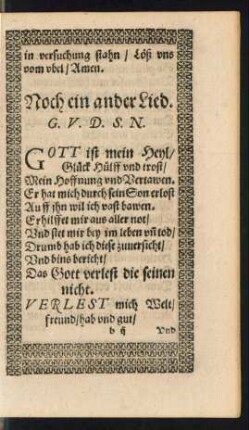 in versuchung stahn / Löß vns
vom vbel / Amen.
Noch ein ander Lied.
G. V. D. S. N.
GOTT ist mein Heyl /
Glück Hülff vnd trost /
Mein Hoffnung vnd Vertawen.
Er hat mich durch sein Son erlost
Auff jhn wil ich vast bawen.
Er hilffet mir aus aller not /
Vnd stet mir bey im leben vñ tod /
Drumb hab ich diese zuuersicht /
Vnd bins bericht /
Das Gott verlest die seinen
nicht.
VERLEST mich Welt /
freund / hab vnd gut /
b ij Vnd